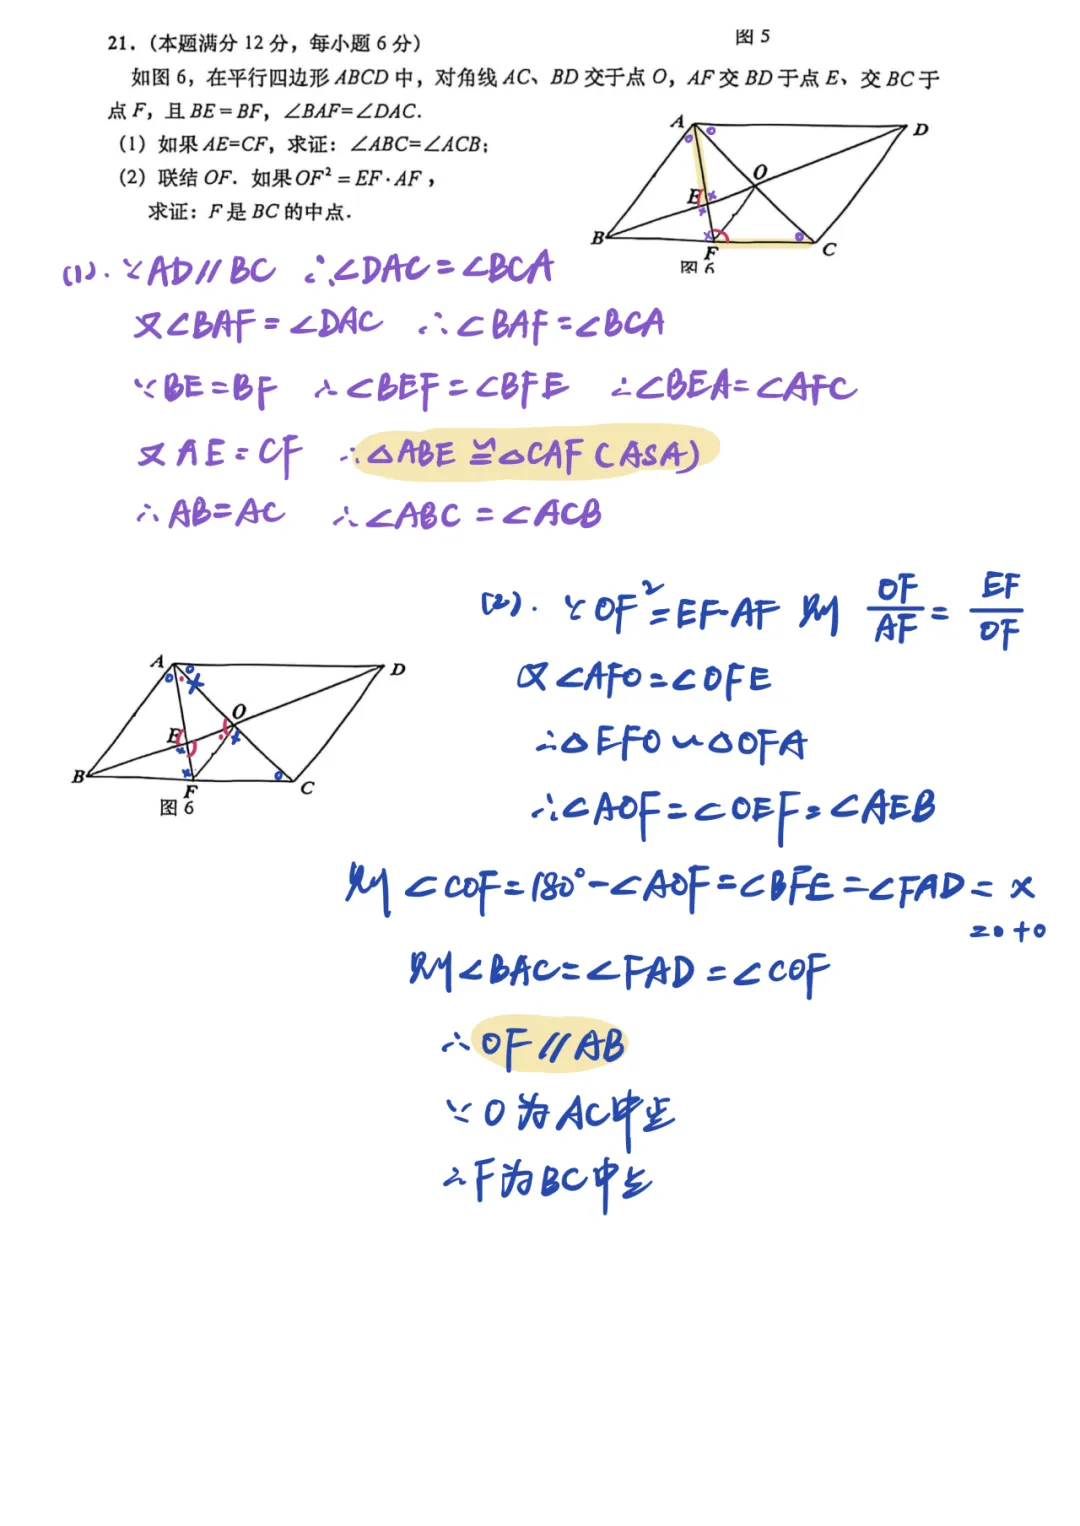 图 5
21．（本题满分 12 分，每小题 6 分）
如图 6，在平行四边形 ABCD 中，对角线 AC、BD 交于点 O，AF 交 BD 于点 E、交 BC 于
点 F，且 BE = BF，∠BAF=∠DAC．
（1）如果 AE=CF，求证：∠ABC=∠ACB；
（2）联结 OF．如果 OF² = EF·AF，
求证：F 是 BC 的中点．
A
D
O
E
B
F
C
图 6
(1). ∵AD∥BC ∴∠DAC=∠BCA
又∠BAF=∠DAC ∴∠BAF=∠BCA
∵BE=BF ∴∠BEF=∠BFE ∴∠BEA=∠AFC
又AE=CF ∴△ABE≌△CAF(ASA)
∴AB=AC ∴∠ABC=∠ACB
(2). ∵OF²=EF·AF 则 OF/AF = EF/OF
又∠AFO=∠OFE
∴△EFO∽△OFA
∴∠AOF=∠OEF=∠AEB
则∠COF=180°-∠AOF=∠BFE=∠FAD=×
=o+o
则∠BAC=∠FAD=∠COF
∴OF∥AB
∵O为AC中点
∴F为BC中点
A
D
O
E
B
F
C
图 6